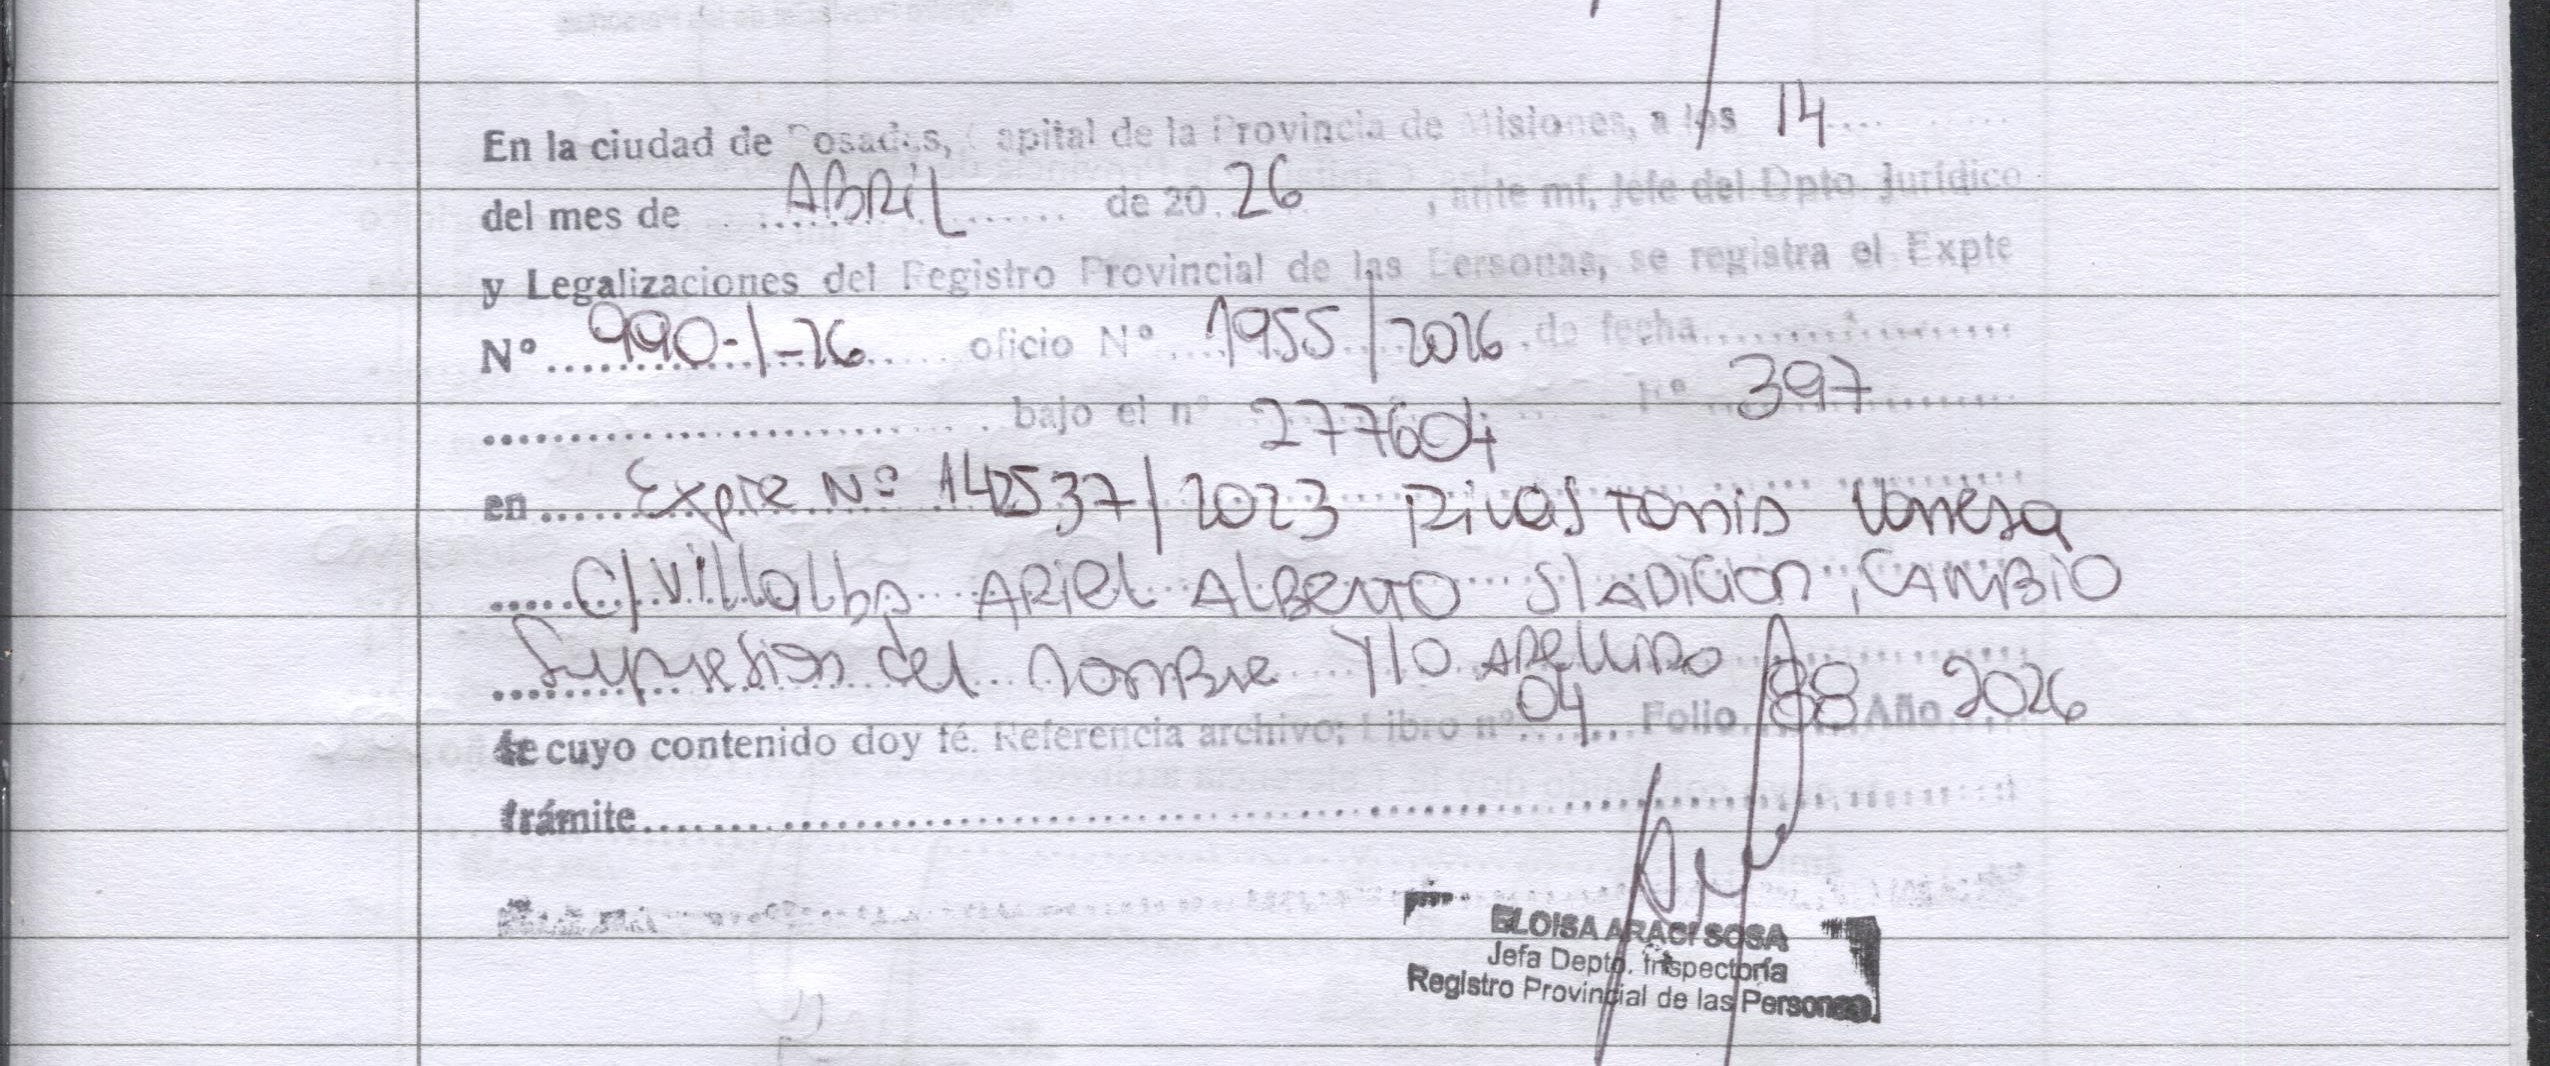 En la ciudad de Posadas, Capital de la Provincia de Misiones, a los 14
del mes de ABRIL de 20 26, ante mí, Jefe del Dpto. Jurídico
y Legalizaciones del Registro Provincial de las Personas, se registra el Expte
Nº 990-1-26 oficio Nº 1955/2026 de fecha
bajo el nº 277604 Fº 397
en Expte Nº 142537/2023 Rivas Tania Vanesa
C/ Villalba Ariel Alberto S/ADICION, CAMBIO
Supresion del nombre Y/O APELLIDO
de cuyo contenido doy fé. Referencia archivo: Libro nº 04 Folio 88 Año 2026
trámite
ELOISA ARACI SOSA
Jefa Depto. Inspectoría
Registro Provincial de las Personas